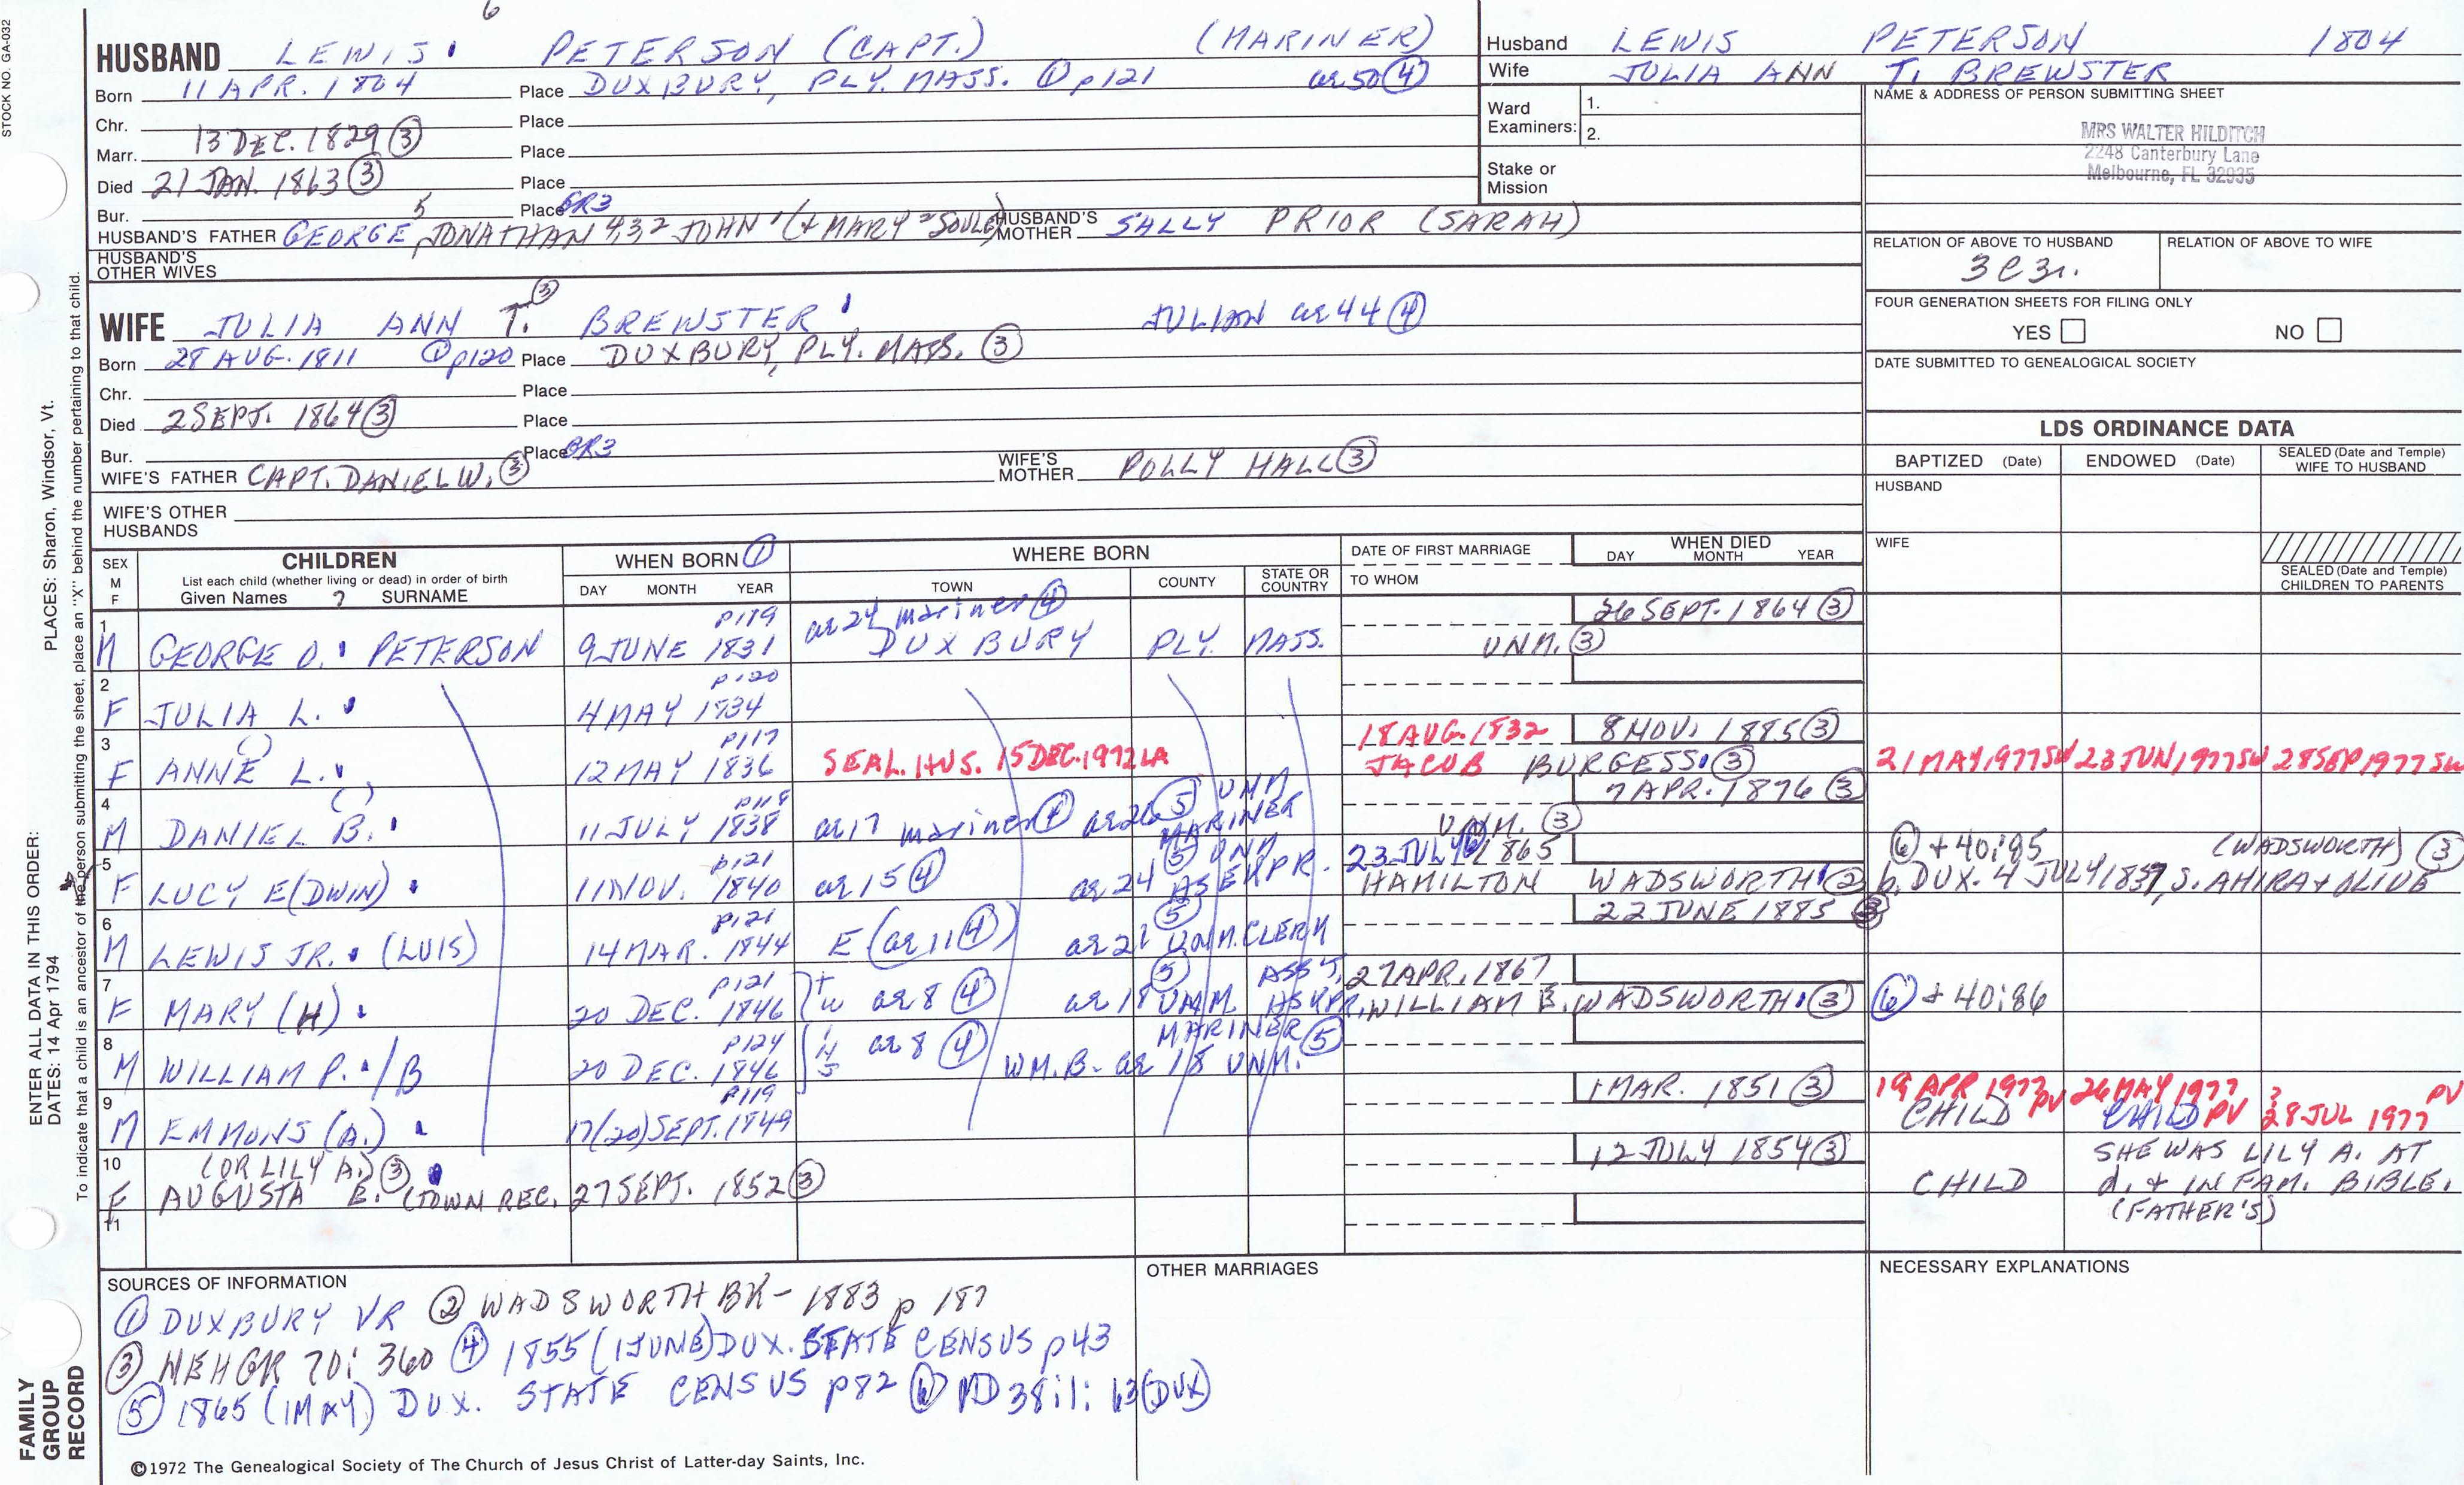 STOCK NO. GA-032
6
HUSBAND LEWIS PETERSON (CAPT.) (MARINER)
Born 11 APR. 1804 Place DUXBURY, PLY. MASS. ① p121 ae 50 ④
Chr. Place
Marr. 13 DEC. 1829 ③ Place
Died 21 JAN. 1863 ③ Place
Bur. Place GR3
HUSBAND'S FATHER GEORGE 5, JONATHAN 4,3,2 JOHN 1 (+ MARY 2 SOULE) HUSBAND'S MOTHER SALLY PRIOR (SARAH)
HUSBAND'S OTHER WIVES
Husband LEWIS PETERSON 1804
Wife JULIA ANN T. BREWSTER
Ward Examiners: 1.
2.
Stake or Mission
NAME & ADDRESS OF PERSON SUBMITTING SHEET
MRS WALTER HILDITCH
2248 Canterbury Lane
Melbourne, FL 32935
RELATION OF ABOVE TO HUSBAND RELATION OF ABOVE TO WIFE
3C3r.
FOUR GENERATION SHEETS FOR FILING ONLY
YES NO
DATE SUBMITTED TO GENEALOGICAL SOCIETY
WIFE JULIA ANN T. ③ BREWSTER JULIAN ae 44 ④
Born 28 AUG. 1811 ① p120 Place DUXBURY, PLY. MASS. ③
Chr. Place
Died 2 SEPT. 1864 ③ Place
Bur. Place GR3
WIFE'S FATHER CAPT. DANIEL W. ③ WIFE'S MOTHER POLLY HALL ③
WIFE'S OTHER HUSBANDS
LDS ORDINANCE DATA
BAPTIZED (Date) ENDOWED (Date) SEALED (Date and Temple) WIFE TO HUSBAND
HUSBAND
WIFE
SEALED (Date and Temple) CHILDREN TO PARENTS
SEX M F CHILDREN List each child (whether living or dead) in order of birth Given Names ? SURNAME
WHEN BORN ① DAY MONTH YEAR
WHERE BORN TOWN COUNTY STATE OR COUNTRY
DATE OF FIRST MARRIAGE TO WHOM
WHEN DIED DAY MONTH YEAR
1 M GEORGE O. PETERSON p119 9 JUNE 1831 ae 24 mariner ④ DUXBURY PLY. MASS. UNM. ③ 26 SEPT. 1864 ③
2 F JULIA L. p120 4 MAY 1834
3 F ANNE L. p117 12 MAY 1836 SEAL. HUS. 15 DEC. 1972 LA 18 AUG. 1832 JACOB BURGESS ③ 8 NOV. 1885 ③ 21 MAY 1977 SW 23 JUN 1977 SW 28 SEP 1977 SW
4 M DANIEL B. p118 11 JULY 1838 ae 17 mariner ④ ae 26 ⑤ UNM MARINER UNM. ③ 7 APR. 1876 ③
5 F LUCY E(DWIN) p121 11 NOV. 1840 ae 15 ④ ae 24 ⑤ UNM ASEXPR. 23 JULY ⑥ 1865 HAMILTON WADSWORTH ② ⑥ + 40:85 (WADSWORTH) ③ b. DUX. 4 JULY 1837, S. AHIRA + OLIVE
6 M LEWIS JR. (LUIS) p121 14 MAR. 1844 E (ae 11 ④) ae 21 ⑤ UNM. CLERK 22 JUNE 1885 ③
7 F MARY (H) p121 20 DEC. 1846 tw ae 8 ④ ae 18 ⑤ UNM. ASS'T. ASXPR. 27 APR. 1867 WILLIAM E. WADSWORTH ③ ⑥ + 40:86
8 M WILLIAM P. /B p124 20 DEC. 1846 ae 8 ④ WM. B- ae 18 UNM. MARINER ⑤
9 M EMMONS (A.) p119 17(20) SEPT. 1849 1 MAR. 1851 ③ 19 APR 1977 PV CHILD 26 MAY 1977 CHILD PV 28 JUL 1977 PV
10 F (OR LILY A.) ③ AUGUSTA E. (TOWN REC. 27 SEPT. 1852 ③ 12 JULY 1854 ③ CHILD SHE WAS LILY A. AT d. + IN FAM. BIBLE. (FATHER'S)
11
SOURCES OF INFORMATION
① DUXBURY VR ② WADSWORTH BK - 1883 p 187
③ NEHGR 70: 360 ④ 1855 (1 JUNE) DUX. STATE CENSUS p43
⑤ 1865 (1 MAY) DUX. STATE CENSUS p82 ⑥ MD 38:1: 63 (DUX)
OTHER MARRIAGES
NECESSARY EXPLANATIONS
©1972 The Genealogical Society of The Church of Jesus Christ of Latter-day Saints, Inc.
FAMILY GROUP RECORD
ENTER ALL DATA IN THIS ORDER: PLACES: Sharon, Windsor, Vt.
DATES: 14 Apr 1794
To indicate that a child is an ancestor of the person submitting the sheet, place an "X" behind the number pertaining to that child.